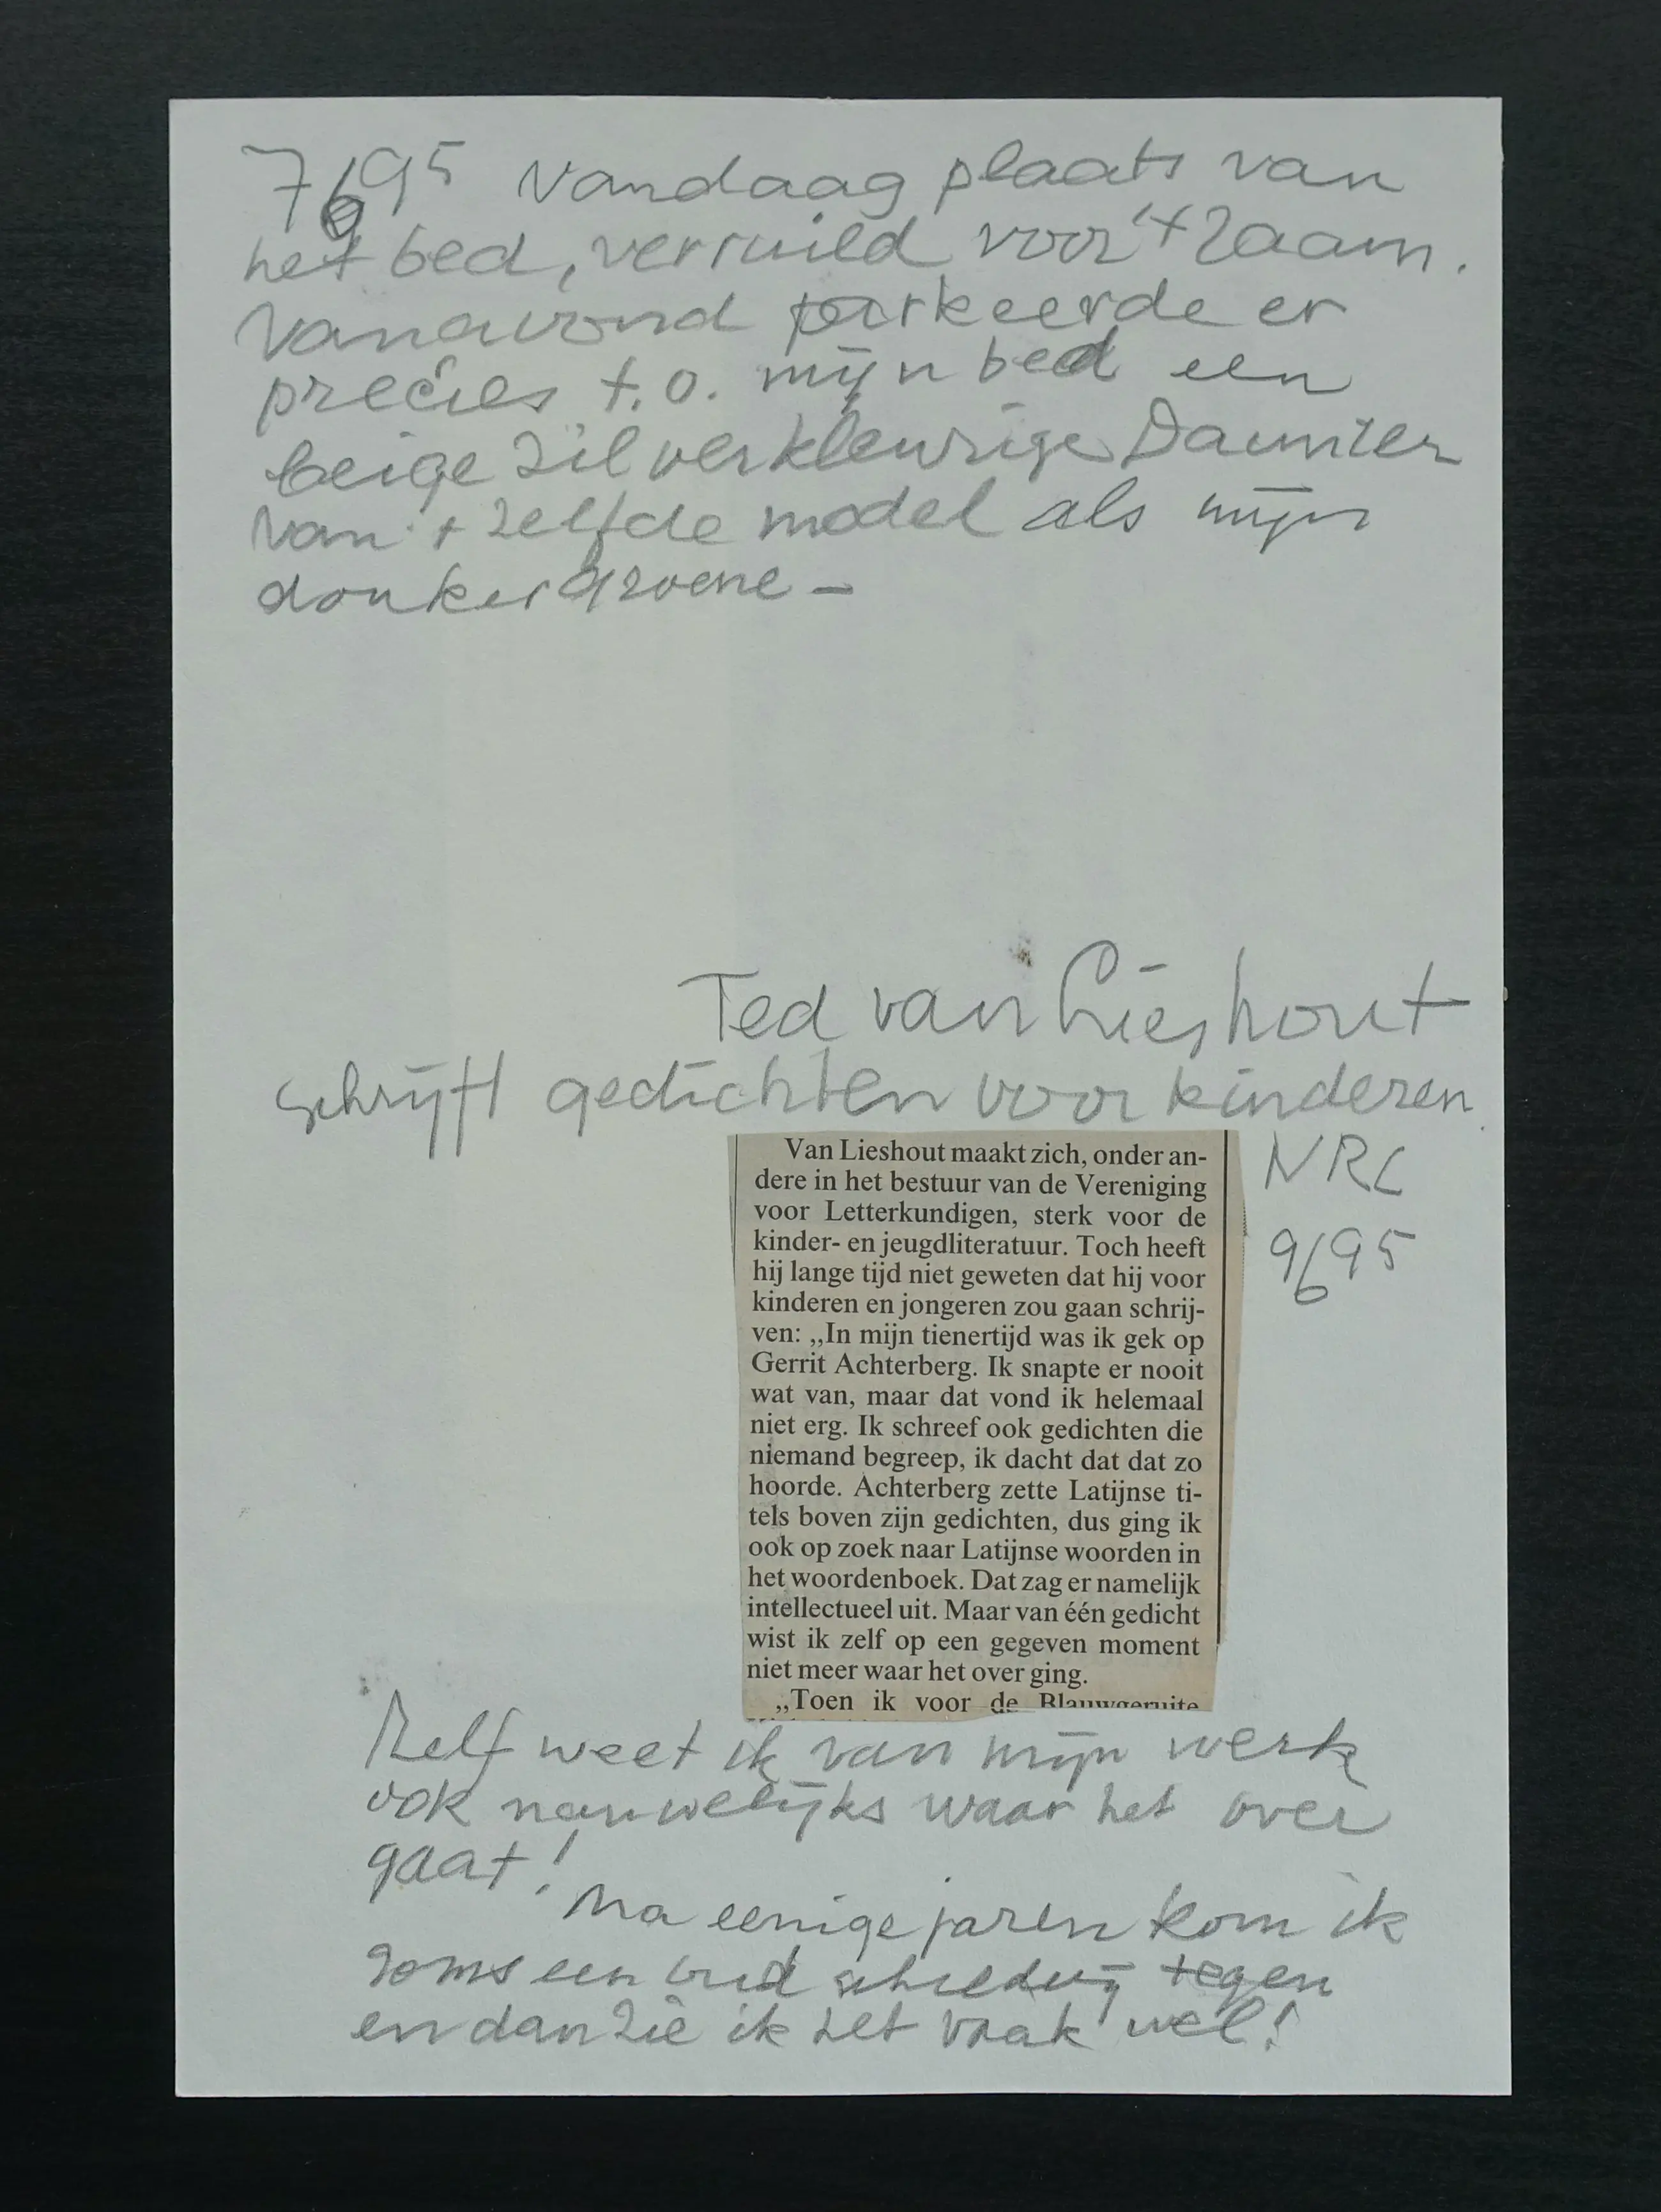 7/6 95 Vandaag plaats van
het bed, verruild voor 't raam.
Vanavond parkeerde er
precies t.o. mijn bed een
beige zilverkleurige Daimler
van 't zelfde model als mijn
donkergroene –
Ted van Lieshout
schrijft gedichten voor kinderen
Van Lieshout maakt zich, onder an-
dere in het bestuur van de Vereniging
voor Letterkundigen, sterk voor de
kinder- en jeugdliteratuur. Toch heeft
hij lange tijd niet geweten dat hij voor
kinderen en jongeren zou gaan schrij-
ven: „In mijn tienertijd was ik gek op
Gerrit Achterberg. Ik snapte er nooit
wat van, maar dat vond ik helemaal
niet erg. Ik schreef ook gedichten die
niemand begreep, ik dacht dat dat zo
hoorde. Achterberg zette Latijnse ti-
tels boven zijn gedichten, dus ging ik
ook op zoek naar Latijnse woorden in
het woordenboek. Dat zag er namelijk
intellectueel uit. Maar van één gedicht
wist ik zelf op een gegeven moment
niet meer waar het over ging.
„Toen ik voor de Blauwgeruite
NRC
9/6 95
Zelf weet ik van mijn werk
ook nauwelijks waar het over
gaat!
Na eenige jaren kom ik
soms een oud schilderij tegen
en dan zie ik het vaak wel!